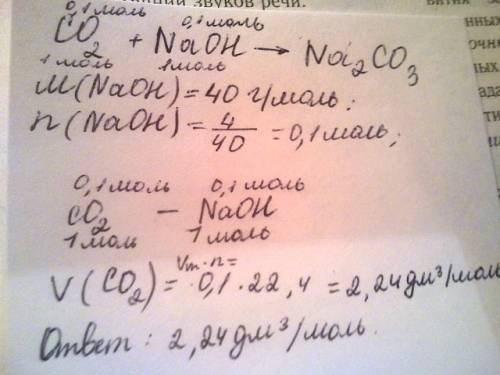 звуков речи.
0,1моль 0,1моль
CO2 + NaOH → Na2CO3
1моль 1моль
M(NaOH)=40 г/моль;
n(NaOH)= 4/40 =0,1моль;
0,1моль 0,1моль
CO2 — NaOH
1моль 1моль
Vm·n=
V(CO2)= 0,1·22,4 = 2,24дм³/моль
Ответ: 2,24дм³/моль.